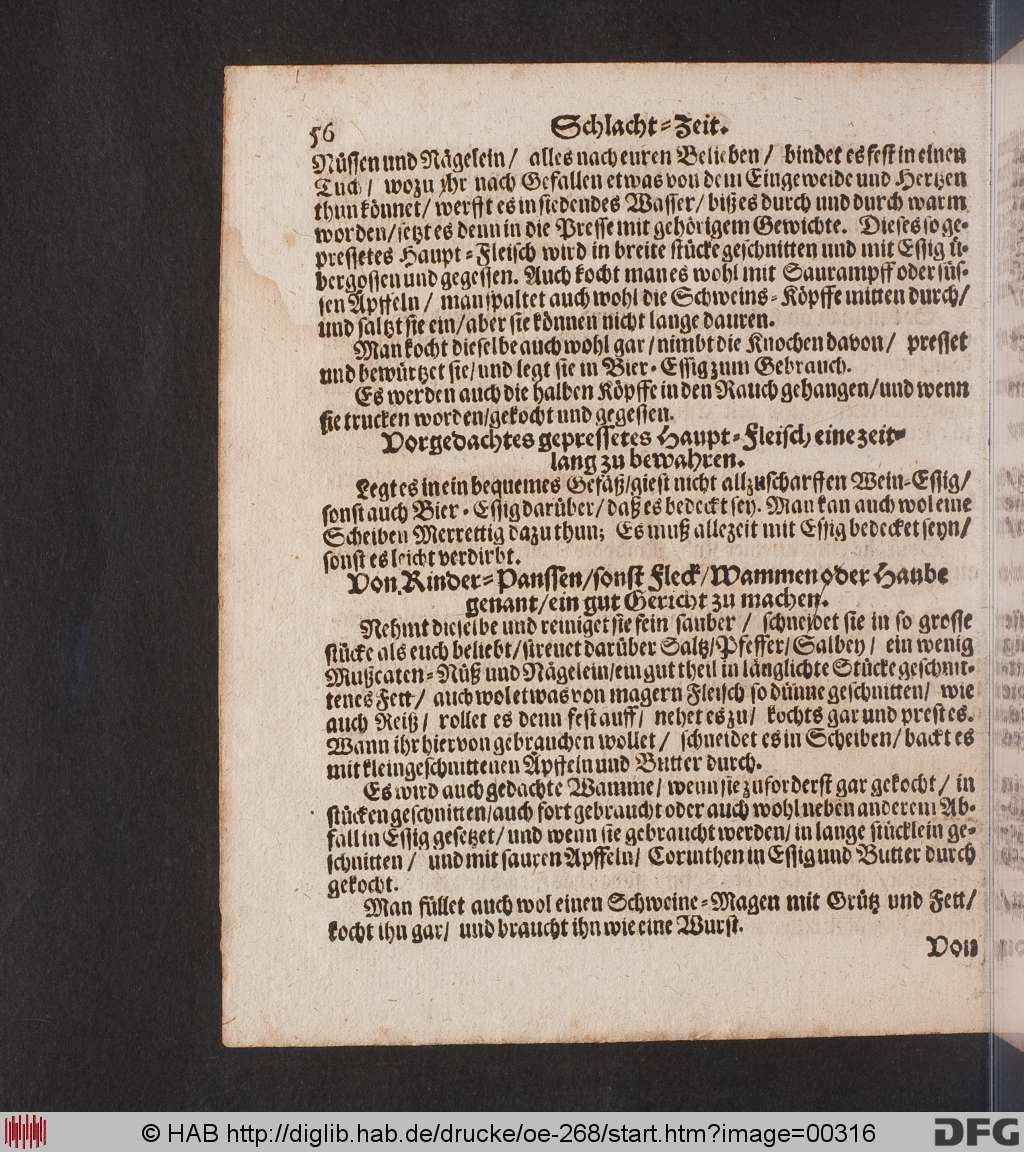 56
Schlacht-Zeit.
Nüssen und Nägelein/ alles nach euren Belieben/ bindet es fest in einen
Tuch/ wozu ihr nach Gefallen etwas von dem Eingeweide und Hertzen
thun könnet/ werfft es in siedendes Wasser/ biß es durch und durch warm
worden/ setzt es denn in die Presse mit gehörigem Gewichte. Dieses so ge-
pressetes Haupt-Fleisch wird in breite stücke geschnitten und mit Essig ü-
bergossen und gegessen. Auch kocht man es wohl mit Saurampff oder süs-
sen Äpffeln/ man spaltet auch wohl die Schweins-Köpffe mitten durch/
und saltzt sie ein/ aber sie können nicht lange dauren.
Man kocht dieselbe auch wohl gar/ nimbt die Knochen davon/ presset
und bewürtzet sie/ und legt sie in Bier-Essig zum Gebrauch.
Es werden auch die halben Köpffe in den Rauch gehangen/ und wenn
sie trucken worden/ gekocht und gegessen.
Vorgedachtes gepressetes Haupt-Fleisch eine zeit-
lang zu bewahren.
Legt es in ein bequemes Gefäß/ giest nicht allzuscharffen Wein-Essig/
sonst auch Bier-Essig darüber/ daß es bedeckt sey. Man kan auch wol eine
Scheiben Merrettig dazu thun; Es muß allezeit mit Essig bedecket seyn/
sonst es leicht verdirbt.
Von Rinder-Panssen/ sonst Fleck/ Wammen oder Haube
genant/ ein gut Gericht zu machen.
Nehmt dieselbe und reiniget sie fein sauber/ schneidet sie in so grosse
stücke als euch beliebt/ streuet darüber Saltz/ Pfeffer/ Salbey/ ein wenig
Mußcaten-Nüß und Nägelein/ ein gut theil in länglichte Stücke geschnit-
tenes Fett/ auch wol etwas von magern Fleisch so dünne geschnitten/ wie
auch Reiß/ rollet es denn fest auff/ nehet es zu/ kochts gar und prest es.
Wann ihr hiervon gebrauchen wollet/ schneidet es in Scheiben/ backt es
mit kleingeschnittenen Äpffeln und Butter durch.
Es wird auch gedachte Wamme/ wenn sie zuforderst gar gekocht/ in
stücken geschnitten/ auch fort gebraucht oder auch wohl neben anderem Ab-
fall in Essig gesetzet/ und wenn sie gebraucht werden/ in lange stücklein ge-
schnitten/ und mit sauren Äpffeln/ Corinthen in Essig und Butter durch
gekocht.
Man füllet auch wol einen Schweine-Magen mit Grütz und Fett/
kocht ihn gar/ und braucht ihn wie eine Wurst.
Von
© HAB http://diglib.hab.de/drucke/oe-268/start.htm?image=00316
DFG